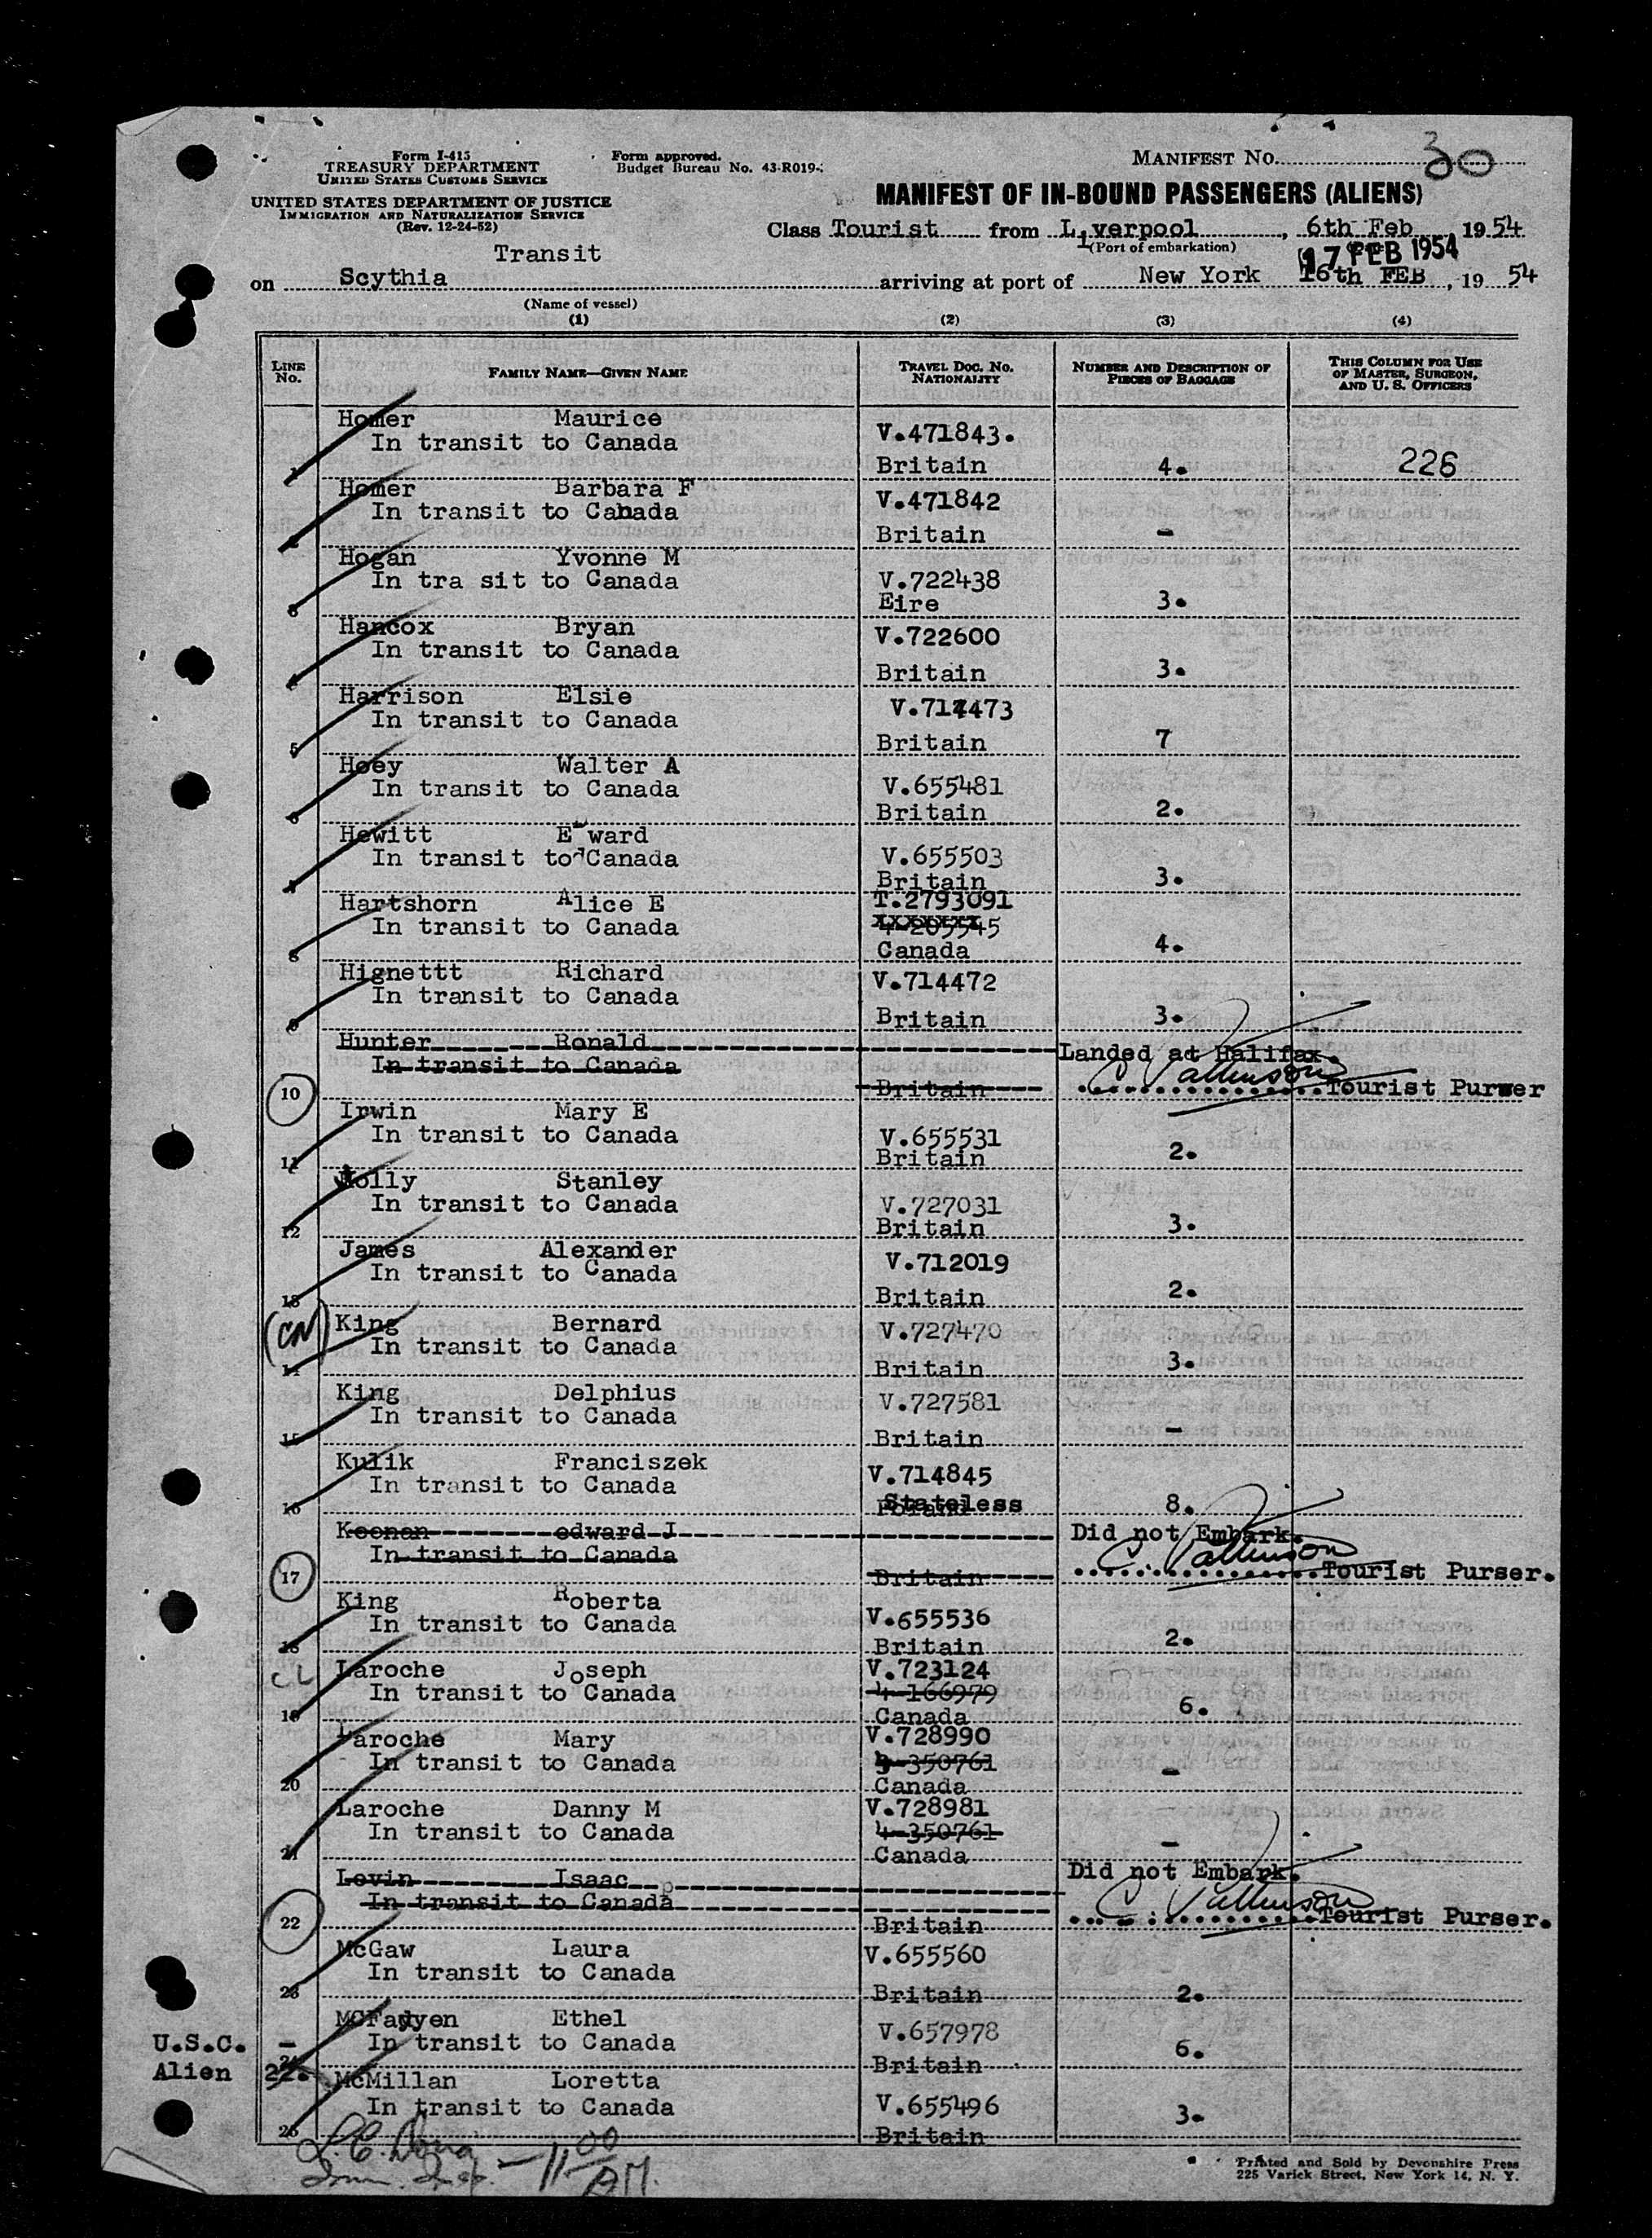 Form I-415
TREASURY DEPARTMENT
UNITED STATES CUSTOMS SERVICE
UNITED STATES DEPARTMENT OF JUSTICE
IMMIGRATION AND NATURALIZATION SERVICE
(Rev. 12-24-52)
Form approved.
Budget Bureau No. 43-R019-
MANIFEST NO. 30
MANIFEST OF IN-BOUND PASSENGERS (ALIENS)
Class Tourist from Liverpool, 6th Feb 1954
(Port of embarkation)
Transit
17 FEB 1954
on Scythia arriving at port of New York 16th FEB, 1954
(Name of vessel)
(1) (2) (3) (4)
LINE No. FAMILY NAME—GIVEN NAME TRAVEL DOC. NO. NATIONALITY NUMBER AND DESCRIPTION OF PIECES OF BAGGAGE THIS COLUMN FOR USE OF MASTER, SURGEON, AND U. S. OFFICERS
Homer Maurice V.471843.
In transit to Canada
1 Britain 4. 226
Homer Barbara F V.471842
In transit to Canada
2 Britain -
Hogan Yvonne M
In tra sit to Canada V.722438
3 Eire 3.
Hancox Bryan V.722600
In transit to Canada
4 Britain 3.
Harrison Elsie V.714473
In transit to Canada
5 Britain 7
Hoey Walter A
In transit to Canada V.655481
6 Britain 2.
Hewitt E ward
In transit to d Canada V.655503
7 Britain 3.
Hartshorn Alice E T.2793091
In transit to Canada 4-205545
8 Canada 4.
Hignettt Richard V.714472
In transit to Canada
9 Britain 3.
Hunter Ronald Landed at Halifax.
In transit to Canada
10 Britain C Pattinson Tourist Purser
Irwin Mary E
In transit to Canada V.655531
11 Britain 2.
Jolly Stanley
In transit to Canada V.727031
12 Britain 3.
James Alexander V.712019
In transit to Canada
13 Britain 2.
(CN) King Bernard V.727470
In transit to Canada
14 Britain 3.
King Delphius V.727581
In transit to Canada
15 Britain -
Kulik Franciszek V.714845
In transit to Canada
16 Stateless 8.
Keenan edward J Did not Embark.
In transit to Canada
17 Britain C. Pattinson Tourist Purser.
King Roberta V.655536
In transit to Canada
18 Britain 2.
CL Laroche Joseph V.723124
In transit to Canada 4-166979
19 Canada 6.
Laroche Mary V.728990
In transit to Canada 3-350761
20 Canada -
Laroche Danny M V.728981
In transit to Canada 4-350761
21 Canada -
Levin Isaac Did not Embark.
In transit to Canada
22 Britain C Pattinson Tourist Purser.
McGaw Laura V.655560
In transit to Canada
23 Britain 2.
MCFadyen Ethel V.657978
U.S.C. - In transit to Canada
24 Britain 6.
Alien 22.
McMillan Loretta
In transit to Canada V.655496
25 Britain 3.
Imm. Insp. - 11 00 AM.
Printed and Sold by Devonshire Press
225 Varick Street, New York 14, N. Y.